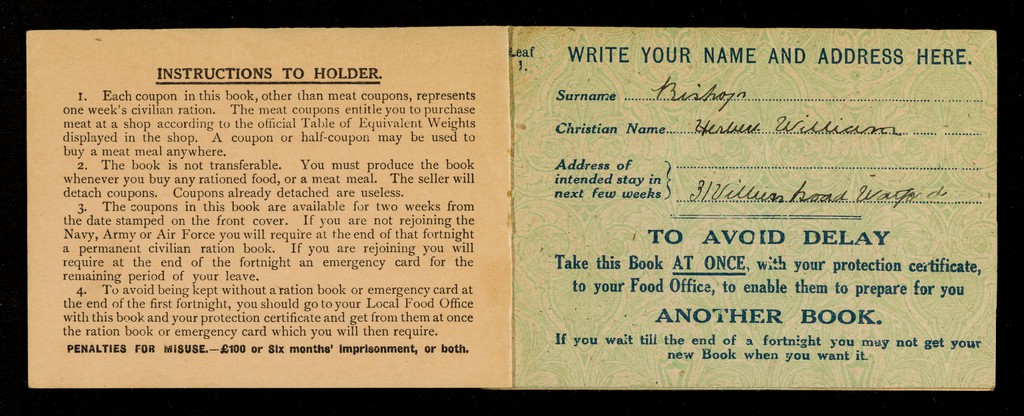 INSTRUCTIONS TO HOLDER.
1. Each coupon in this book, other than meat coupons, represents
one week's civilian ration. The meat coupons entitle you to purchase
meat at a shop according to the official Table of Equivalent Weights
displayed in the shop. A coupon or half-coupon may be used to
buy a meat meal anywhere.
2. The book is not transferable. You must produce the book
whenever you buy any rationed food, or a meat meal. The seller will
detach coupons. Coupons already detached are useless.
3. The coupons in this book are available for two weeks from
the date stamped on the front cover. If you are not rejoining the
Navy, Army or Air Force you will require at the end of that fortnight
a permanent civilian ration book. If you are rejoining you will
require at the end of the fortnight an emergency card for the
remaining period of your leave.
4. To avoid being kept without a ration book or emergency card at
the end of the first fortnight, you should go to your Local Food Office
with this book and your protection certificate and get from them at once
the ration book or emergency card which you will then require.
PENALTIES FOR MISUSE.—£100 or Six months' imprisonment, or both.
Leaf
1.
WRITE YOUR NAME AND ADDRESS HERE.
Surname Bishop
Christian Name Herbert William
Address of
intended stay in
next few weeks 31 Villiers Road Watford
TO AVOID DELAY
Take this Book AT ONCE, with your protection certificate,
to your Food Office, to enable them to prepare for you
ANOTHER BOOK.
If you wait till the end of a fortnight you may not get your
new Book when you want it.